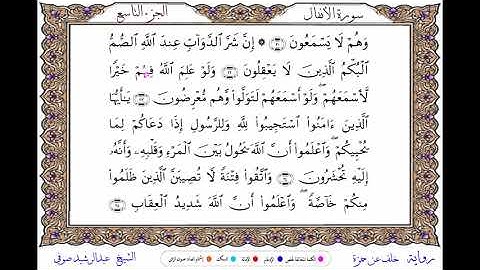 سورة الأنفال الجزء التاسع
وَهُمْ لَا يَسْمَعُونَ ۞ إِنَّ شَرَّ الدَّوَآبِّ عِندَ اللَّهِ الصُّمُّ
الْبُكْمُ الَّذِينَ لَا يَعْقِلُونَ ٢٢ وَلَوْ عَلِمَ اللَّهُ فِيهِمْ خَيْرًا
لَّأَسْمَعَهُمْ ۖ وَلَوْ أَسْمَعَهُمْ لَتَوَلَّوا۟ وَّهُم مُّعْرِضُونَ ٢٣ يَـٰٓأَيُّهَا
الَّذِينَ ءَامَنُوا۟ اسْتَجِيبُوا۟ لِلَّهِ وَلِلرَّسُولِ إِذَا دَعَاكُمْ لِمَا
يُحْيِيكُمْ ۖ وَاعْلَمُوٓا۟ أَنَّ اللَّهَ يَحُولُ بَيْنَ الْمَرْءِ وَقَلْبِهِ وَأَنَّهُۥٓ
إِلَيْهِ تُحْشَرُونَ ٢٤ وَاتَّقُوا۟ فِتْنَةً لَّا تُصِيبَنَّ الَّذِينَ ظَلَمُوا۟
مِنكُمْ خَآصَّةً ۖ وَاعْلَمُوٓا۟ أَنَّ اللَّهَ شَدِيدُ الْعِقَابِ ٢٥
رواية خلف عن حمزة الشيخ عبدالرشيد صوفي